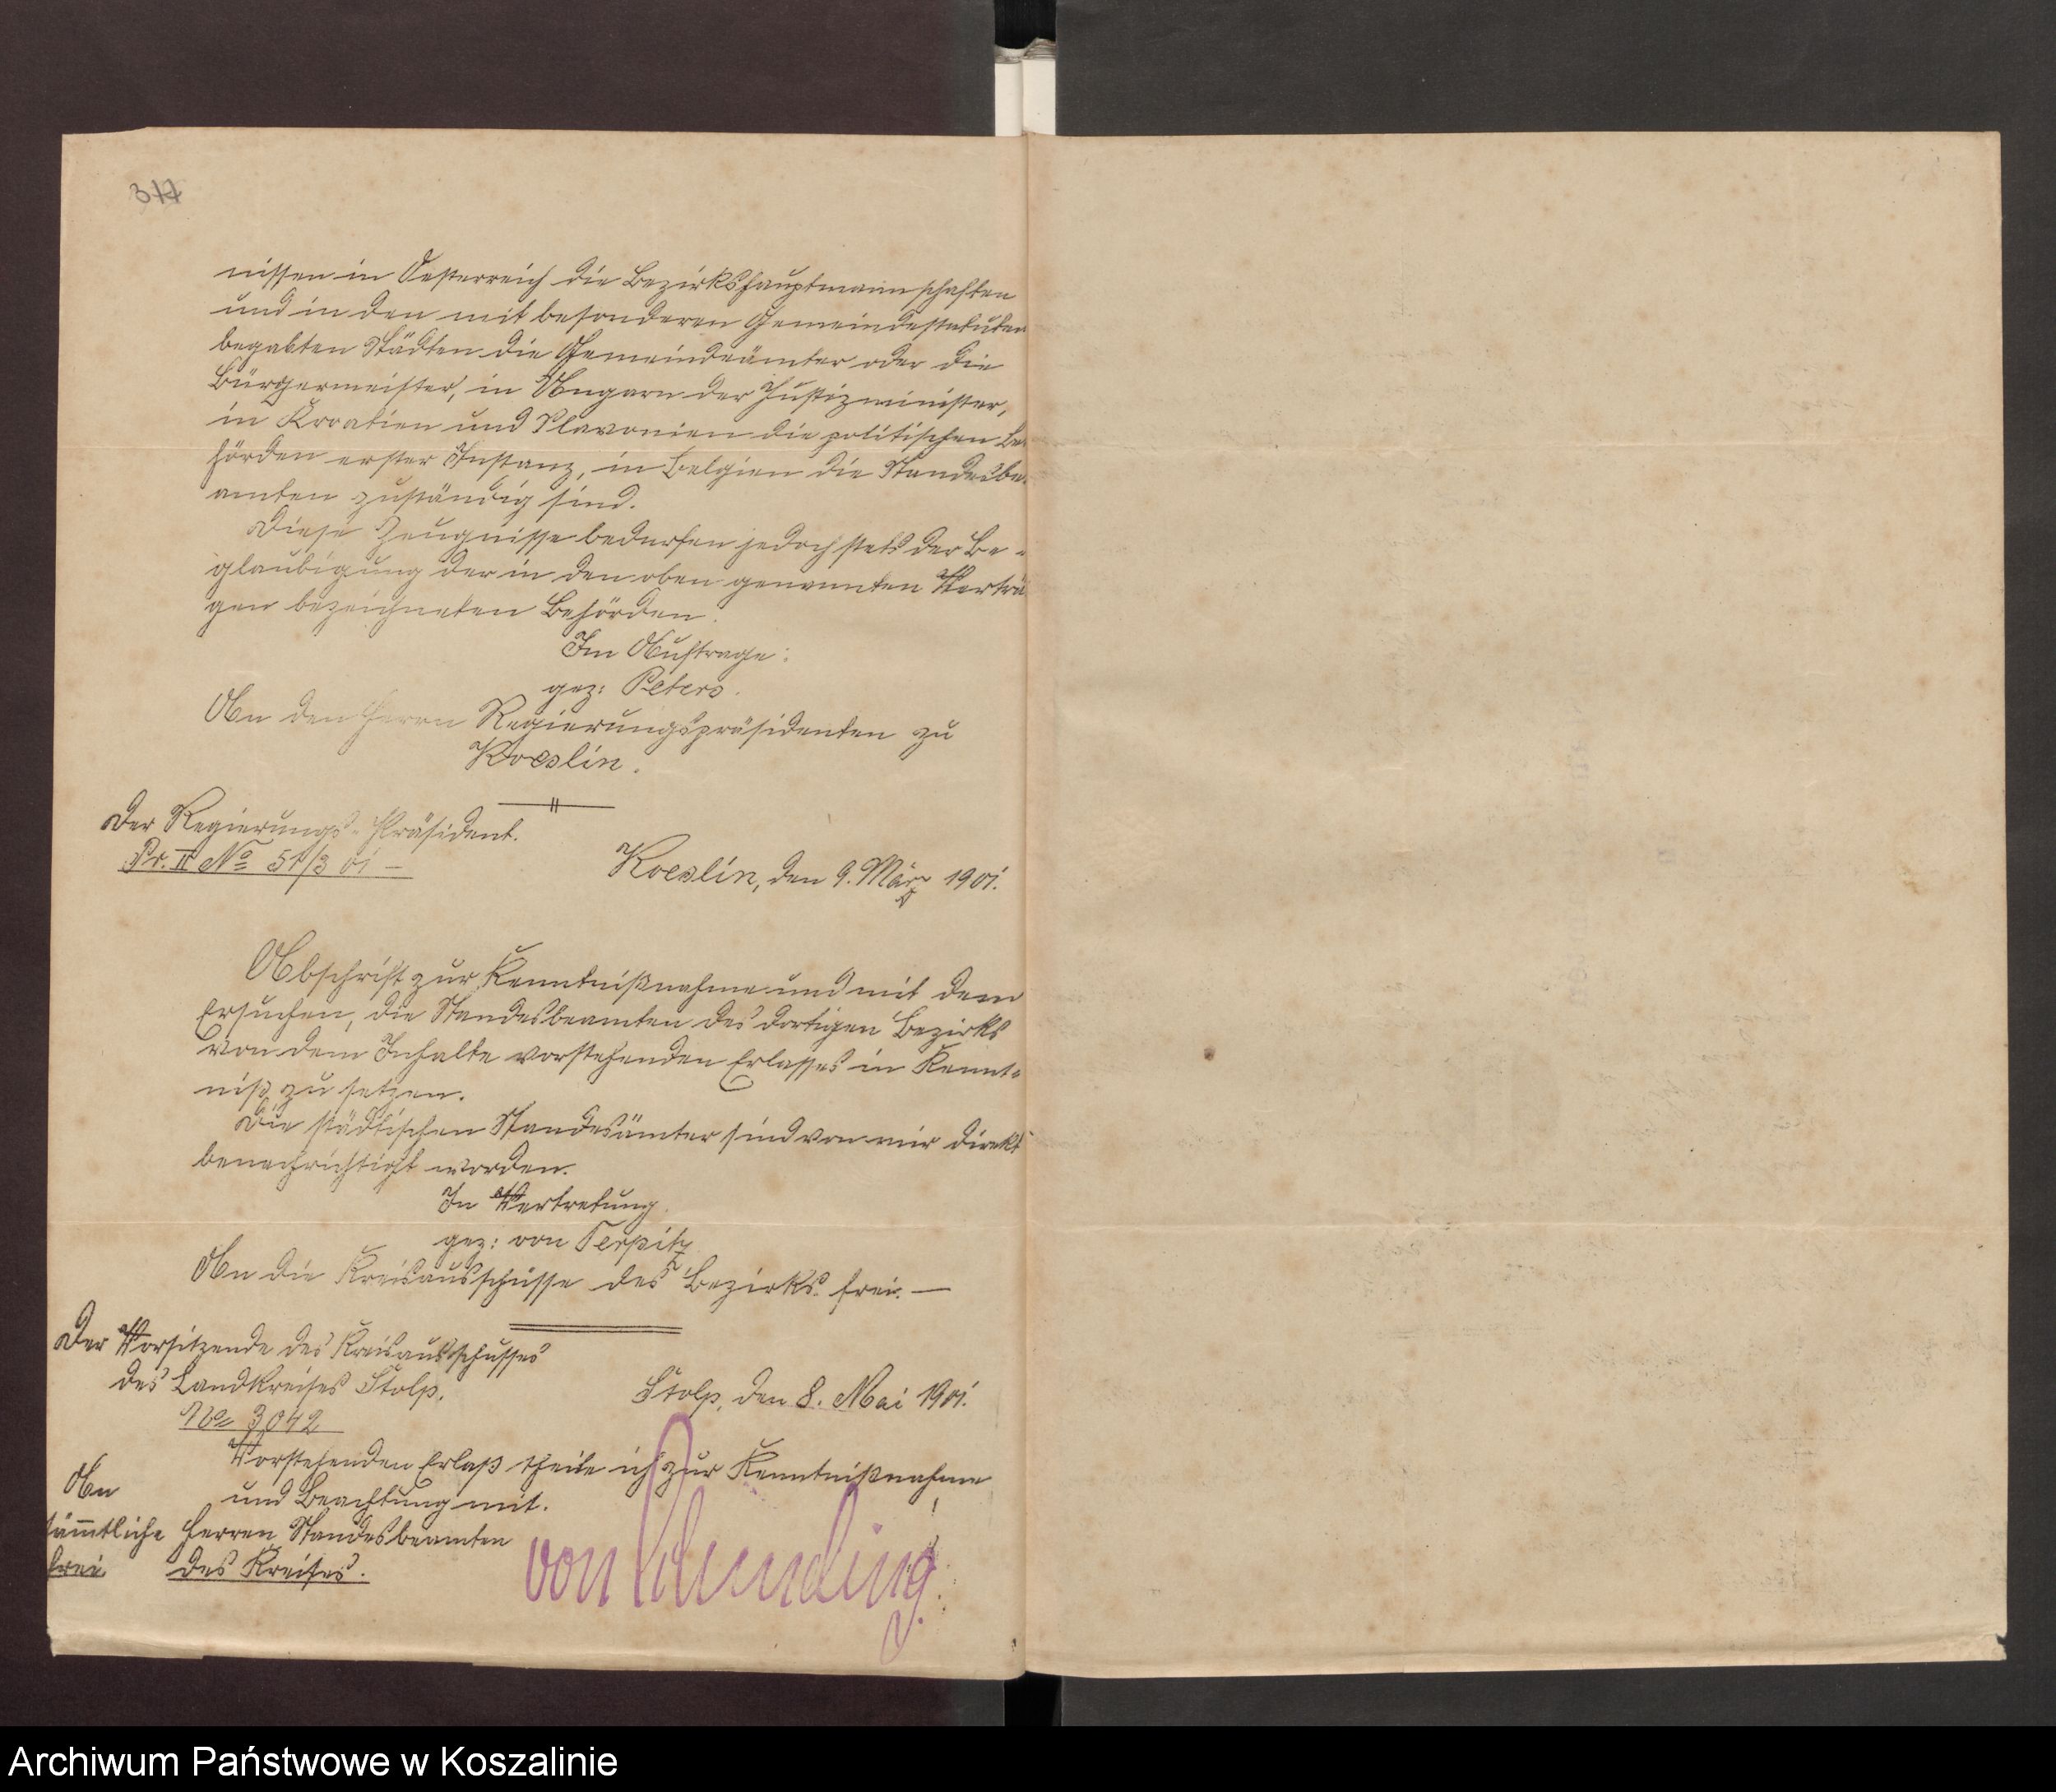 377
nissen in Oesterreich die Bezirkshauptmannschaften
und in den mit besonderen Gemeindestatuten
begabten Städten die Gemeindeämter oder die
Bürgermeister, in Ungarn der Justizminister,
in Kroatien und Slavonien die politischen Be-
hörden erster Instanz, in Belgien die Standesbe-
amten zuständig sind.
Diese Zeugnisse bedürfen jedoch stets der Be-
glaubigung der in den oben genannten Verträ
gen bezeichneten Behörden.
Im Auftrage:
gez: Peters.
An den Herrn Regierungspräsidenten zu
Koeslin.
Der Regierungs-Präsident.
Pr. II No 51/3 01 –
Koeslin, den 9. März 1901.
Abschrift zur Kenntnißnahme und mit dem
Ersuchen, die Standesbeamten des dortigen Bezirks
von dem Inhalte vorstehenden Erlasses in Kennt-
niß zu setzen.
Die städtischen Standesämter sind von mir direkt
benachrichtigt worden.
In Vertretung.
gez: von Terpitz
An die Kreisausschüsse des Bezirks. frei. —
Der Vorsitzende des Kreisausschusses
des Landkreises Stolp.
No 3042
Stolp, den 8. Mai 1901.
Vorstehenden Erlaß theile ich zur Kenntnißnahme
und Beachtung mit.
An
sämmtliche Herren Standesbeamten
frei. des Kreises.
von
Archiwum Państwowe w Koszalinie